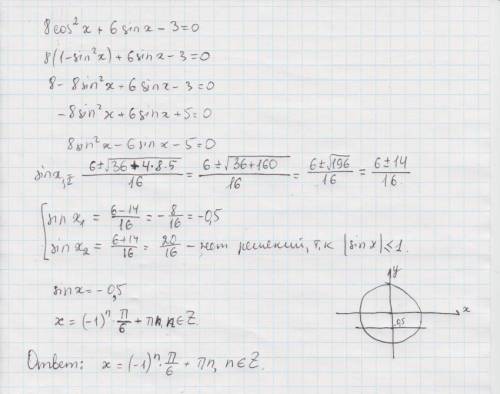 8cos²x + 6sinx − 3 = 0
8(1 − sin²x) + 6sinx − 3 = 0
8 − 8sin²x + 6sinx − 3 = 0
−8sin²x + 6sinx + 5 = 0
8sin²x − 6sinx − 5 = 0
sinx₁,₂ = (6 ± √(36 + 4·8·5))/16 = (6 ± √(36 + 160))/16 = (6 ± √196)/16 = (6 ± 14)/16
[ sin x₁ = (6 − 14)/16 = −8/16 = −0,5
sin x₂ = (6 + 14)/16 = 20/16 − нет решений, т.к |sin x| ≤ 1.
sinx = −0,5
x = (−1)ⁿ · π/6 + πn, n ∈ Z.
y
x
0,5
Ответ: x = (−1)ⁿ · π/6 + πn, n ∈ Z.